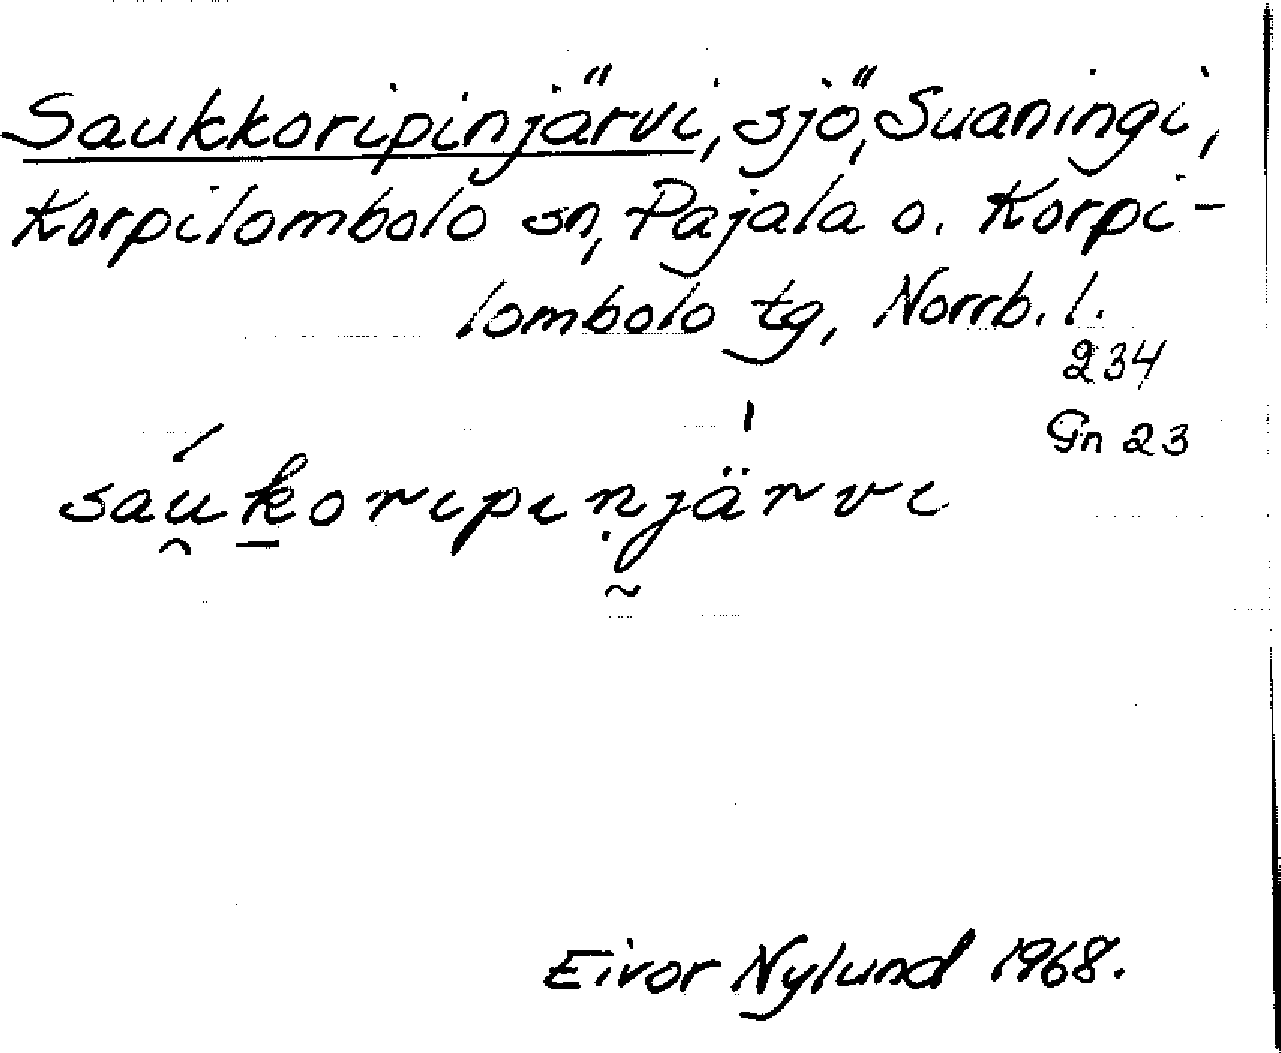 Saukkoripinjärvi, sjö, Suaningi,
Korpilombolo sn, Pajala o. Korpi-
lombolo tg, Norrb. l.
234
Gn 23
sau̯ḵoripiṇjärvi
Eivor Nylund 1968.